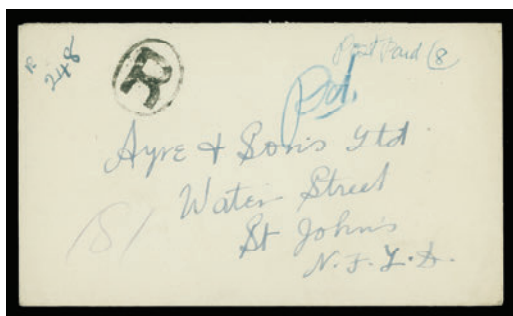 R
248
R
Post Paid (8
Pd.
Ayre & Sons Ltd
Water Street
St John's
N.F.L.D.